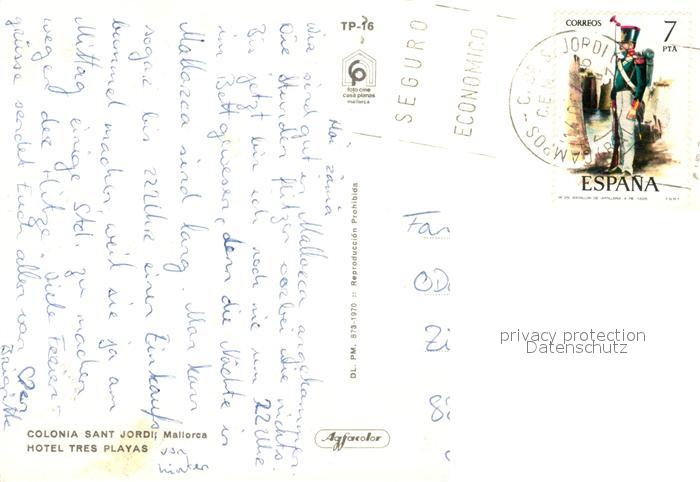 TP-16
foto cine
casa planas
mallorca
SEGURO
ECONOMICO
CORREOS
7
PTA
ESPAÑA
F.N.M.T.
wir sind gut in Mallorca angekommen.
Die Stunden flitzen vorbei wie nichts.
Bis jetzt bin ich noch nie um 22 Uhr
im Bett gewesen, denn die Nächte in
Mallorca sind lang. Man kann
sogar bis 22 Uhr einen Einkaufs
bummel machen weil sie ja am
Mittag einige Std. zu machen
wegen der Hitze. Viele Ferien-
grüsse sendet Euch allen von
Brigitte
DL. PM. 873-1970 :: Reproducción Prohibida
COLONIA SANT JORDI; Mallorca
HOTEL TRES PLAYAS
Agfacolor
privacy protection
Datenschutz